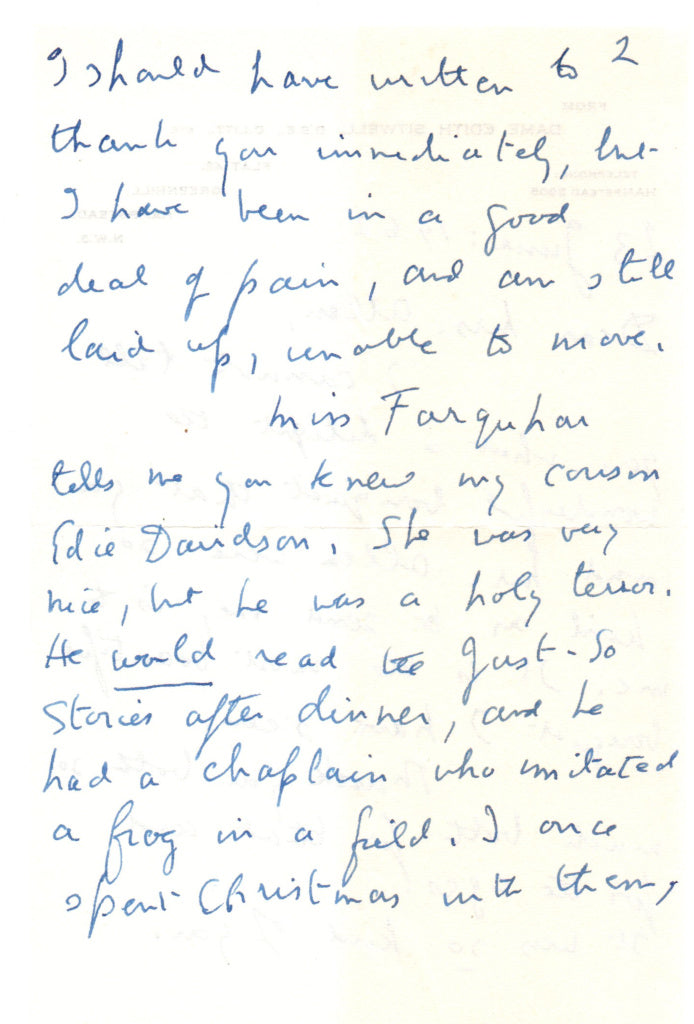 2
I should have written to
thank you immediately, but
I have been in a good
deal of pain, and am still
laid up, unable to move.
Miss Farquhar
tells me you knew my cousin
Edie Davidson. She was very
nice, but he was a holy terror.
He would read the Just-So
Stories after dinner, and he
had a chaplain who imitated
a frog in a field. I once
spent Christmas with them,